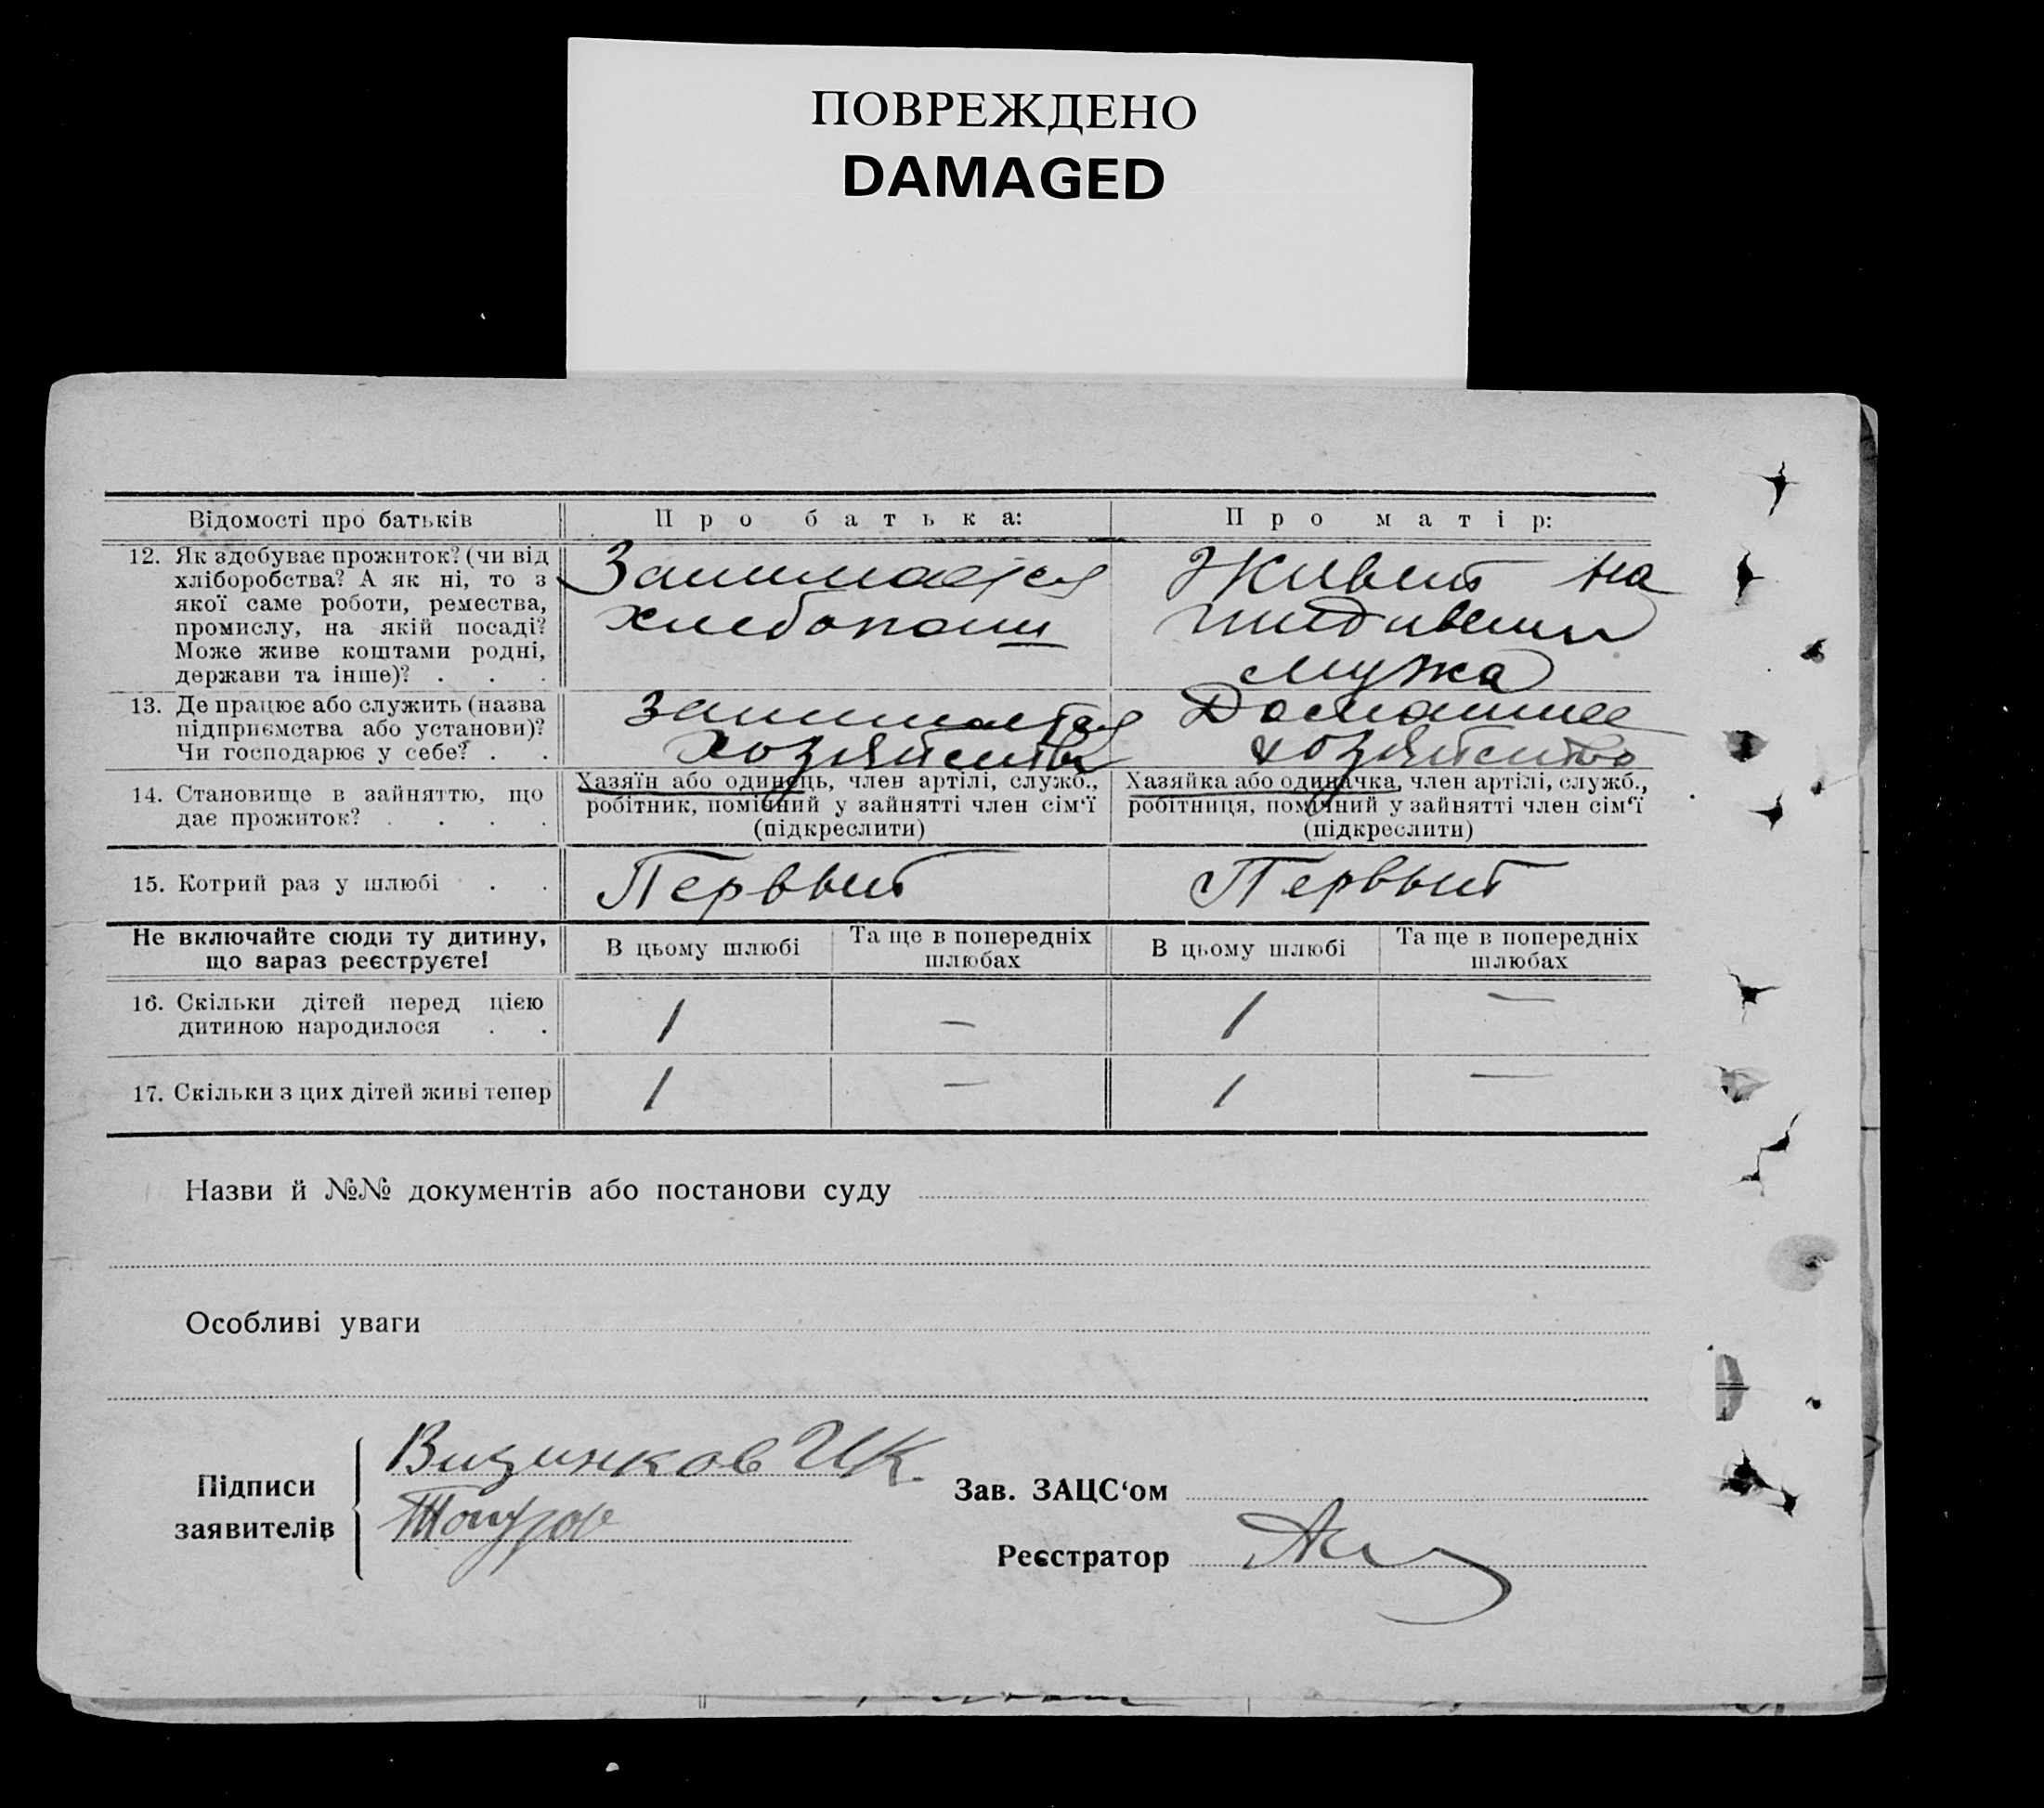 ПОВРЕЖДЕНО
DAMAGED
Відомості про батьків
Про батька:
Про матір:
12. Як здобуває прожиток? (чи від
хліборобства? А як ні, то з
якої саме роботи, ремества,
промислу, на якій посаді?
Може живе коштами родні,
держави та інше)? . . .
Занимается
хлебопаш
Живет на
иждивении
мужа
13. Де працює або служить (назва
підприємства або установи)?
Чи господарює у себе? . .
занимается
хозяйство
Домашнее
хозяйство
14. Становище в зайняттю, що
дає прожиток? . . . .
Хазяїн або одинець, член артілі, служб.,
робітник, помічний у зайнятті член сім'ї
(підкреслити)
Хазяйка або одиначка, член артілі, служб.,
робітниця, помічний у зайнятті член сім'ї
(підкреслити)
15. Котрий раз у шлюбі . .
Первый
Первый
Не включайте сюди ту дитину,
що зараз реєструєте!
В цьому шлюбі
Та ще в попередніх
шлюбах
В цьому шлюбі
Та ще в попередніх
шлюбах
16. Скільки дітей перед цією
дитиною народилося . .
1 — 1 —
17. Скільки з цих дітей живі тепер
1 — 1 —
Назви й №№ документів або постанови суду
Особливі уваги
Підписи
заявителів
ИК.
Зав. ЗАЦС'ом
Реєстратор